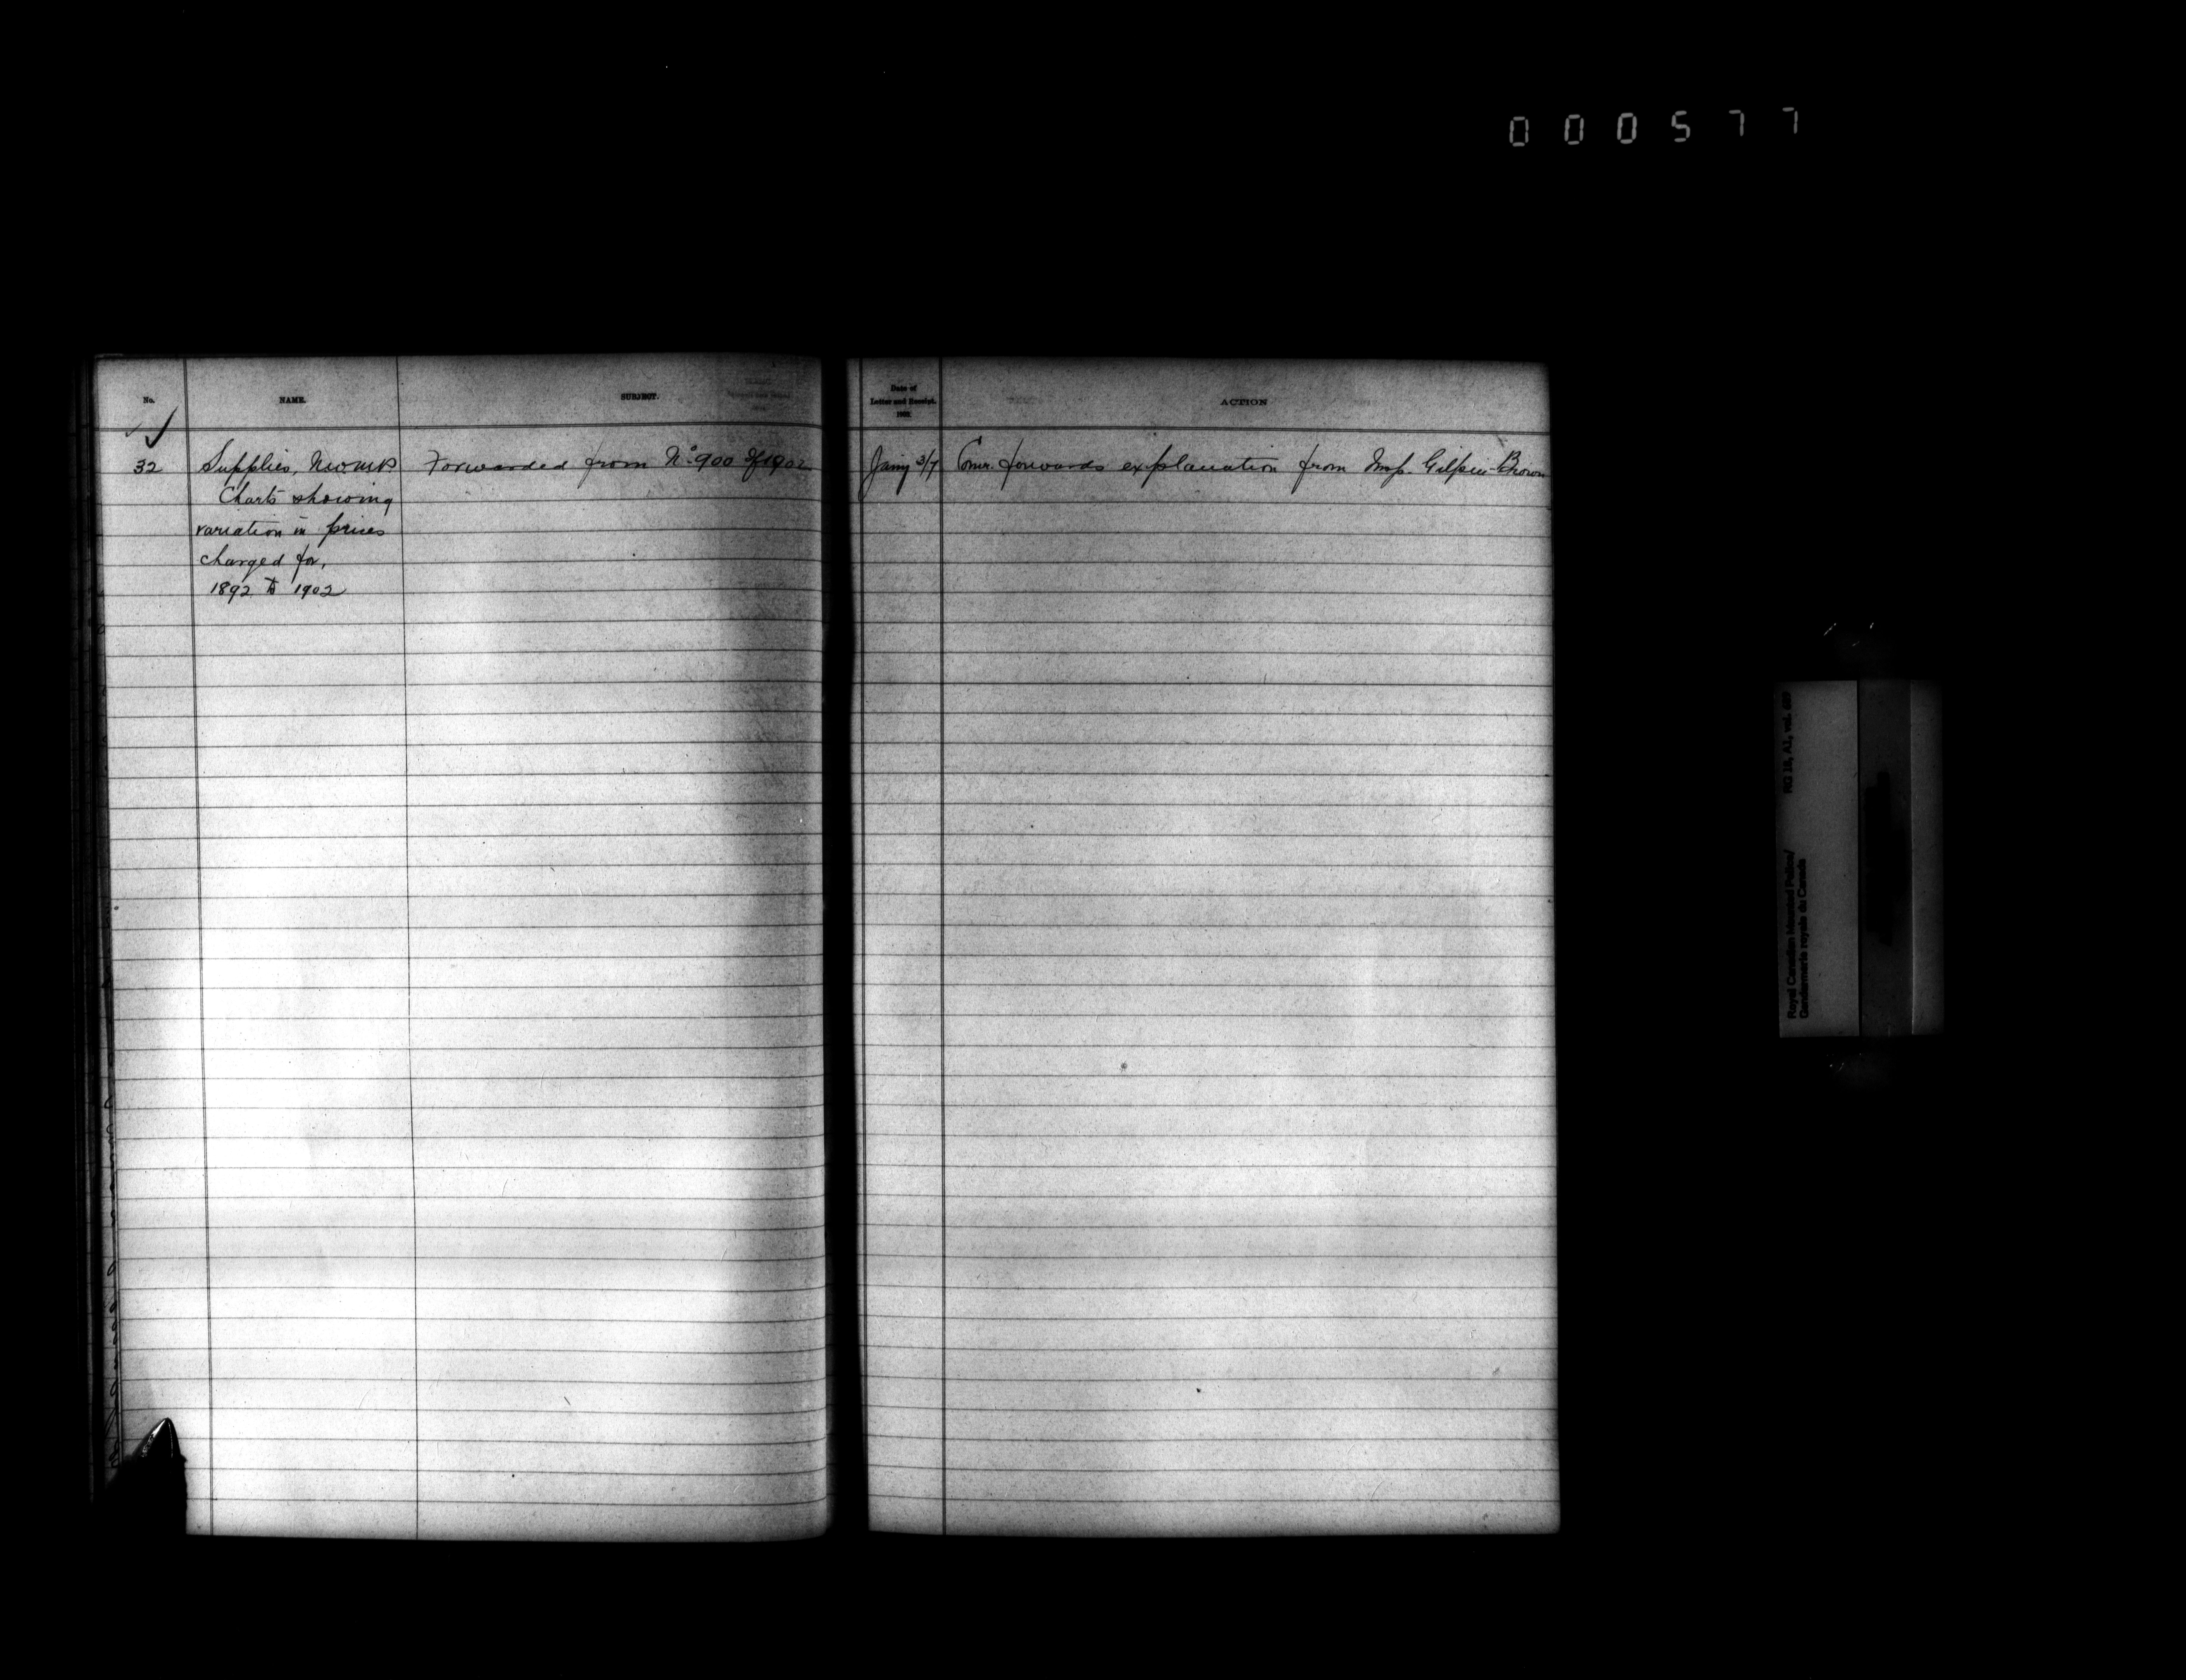 000577
No.
NAME.
SUBJECT.
Date of
Letter and Receipt.
ACTION
32
Supplies, NWMP
Forwarded from No. 900 of 1902
Jany 3/7
Comr. forwards explanation from Insp. Gilpin-Brown
Charts showing
variation in prices
charged for,
1892 to 1902
Royal Canadian Mounted Police/
Gendarmerie royale du Canada
RG 18, A1, vol.